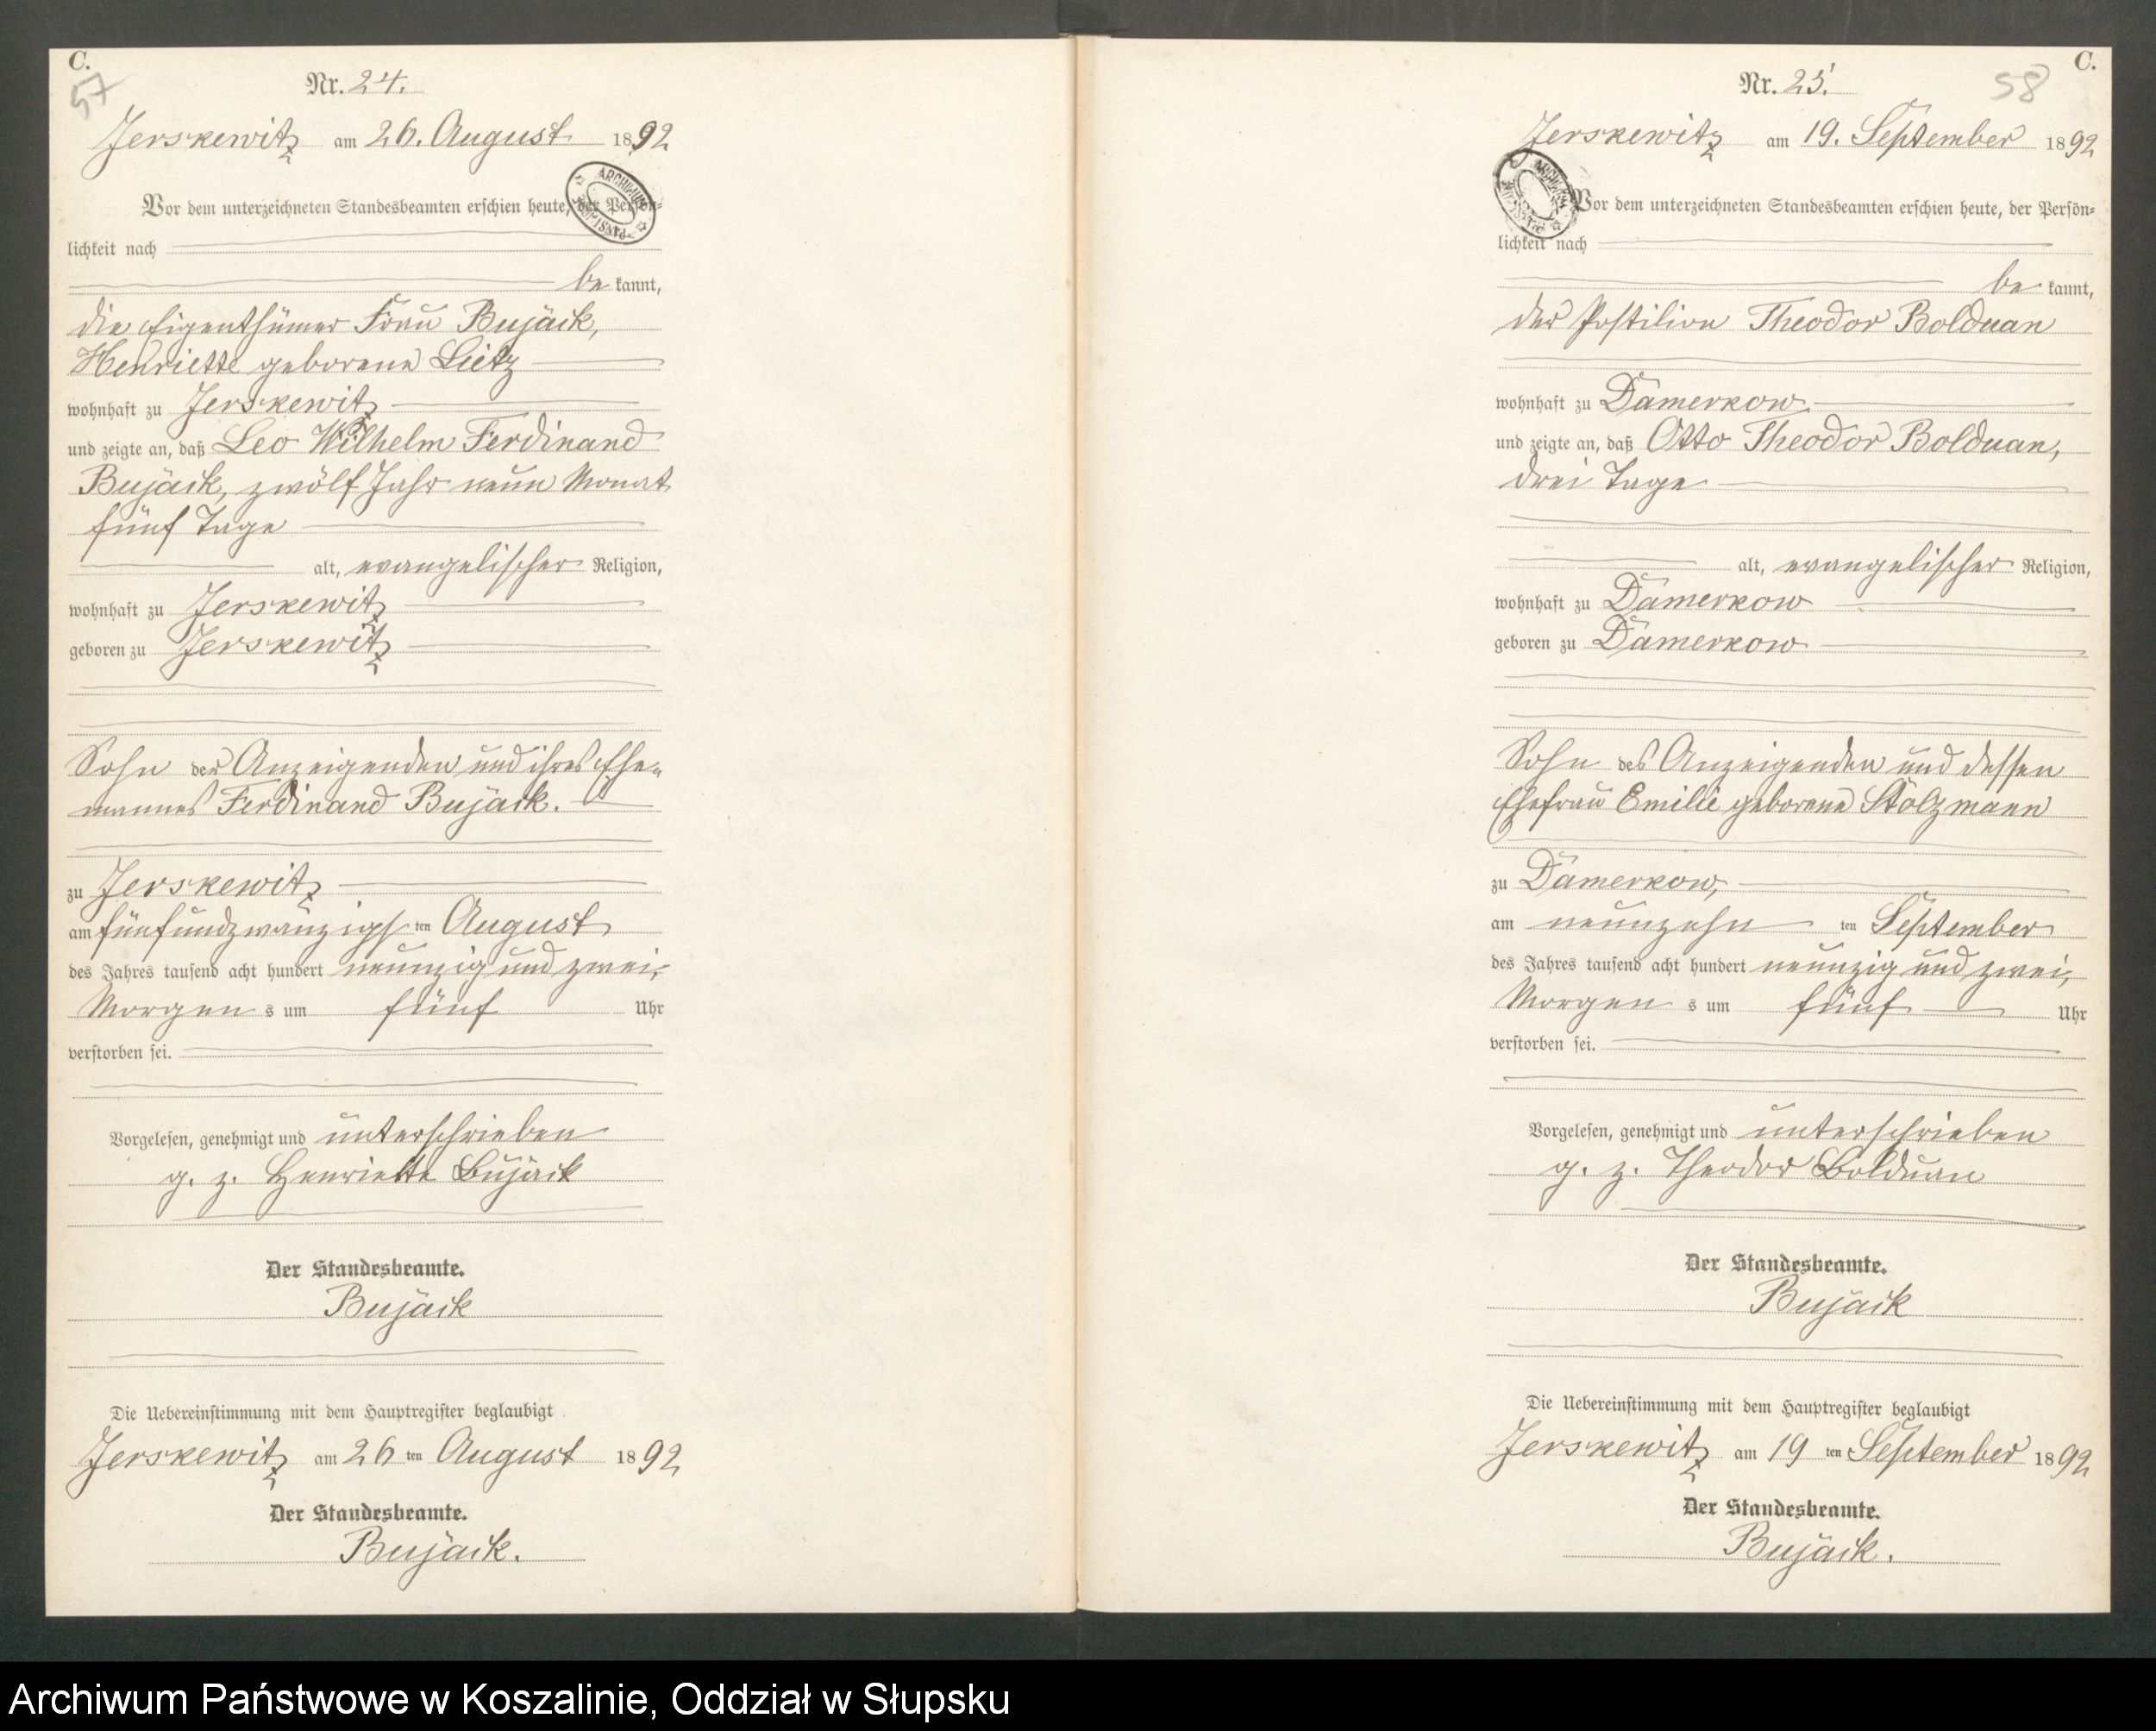 C.
57
Nr. 24.
Jerskewitz am 26. August 1892
Vor dem unterzeichneten Standesbeamten erschien heute, der Persön-
lichkeit nach
be kannt,
die Eigenthümer Frau Bujäck,
Henriette geborene Lietz
wohnhaft zu Jerskewitz
und zeigte an, daß Leo Wilhelm Ferdinand
Bujäck, zwölf Jahr neun Monat
fünf Tage
alt, evangelischer Religion,
wohnhaft zu Jerskewitz
geboren zu Jerskewitz
Sohn der Anzeigenden und ihres Ehe-
mannes Ferdinand Bujäck.
zu Jerskewitz
am fünfundzwanzigsten August
des Jahres tausend acht hundert neunzig und zwei,
Morgens um fünf Uhr
verstorben sei.
Vorgelesen, genehmigt und unterschrieben
g. z. Henriette Bujäck
Der Standesbeamte.
Bujäck
Die Uebereinstimmung mit dem Hauptregister beglaubigt
Jerskewitz am 26 ten August 1892
Der Standesbeamte.
Bujäck.
C.
58
Nr. 25.
Jerskewitz am 19. September 1892
Vor dem unterzeichneten Standesbeamten erschien heute, der Persön-
lichkeit nach
be kannt,
der Postilion Theodor Bolduan
wohnhaft zu Damerkow
und zeigte an, daß Otto Theodor Bolduan,
drei Tage
alt, evangelischer Religion,
wohnhaft zu Damerkow
geboren zu Damerkow
Sohn des Anzeigenden und dessen
Ehefrau Emilie geborene Stolzmann
zu Damerkow,
am neunzehn ten September
des Jahres tausend acht hundert neunzig und zwei,
Morgens um fünf Uhr
verstorben sei.
Vorgelesen, genehmigt und unterschrieben
g. z. Theodor Bolduan
Der Standesbeamte.
Bujäck
Die Uebereinstimmung mit dem Hauptregister beglaubigt
Jerskewitz am 19 ten September 1892
Der Standesbeamte.
Bujäck.
Archiwum Państwowe w Koszalinie, Oddział w Słupsku